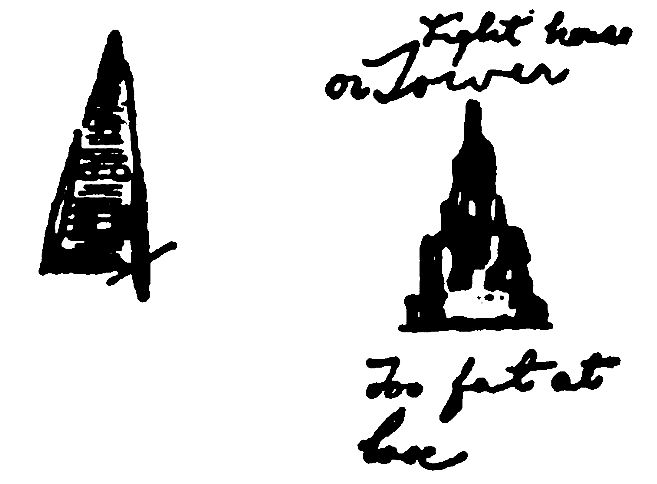 Light house
or Tower
Too fat at
base